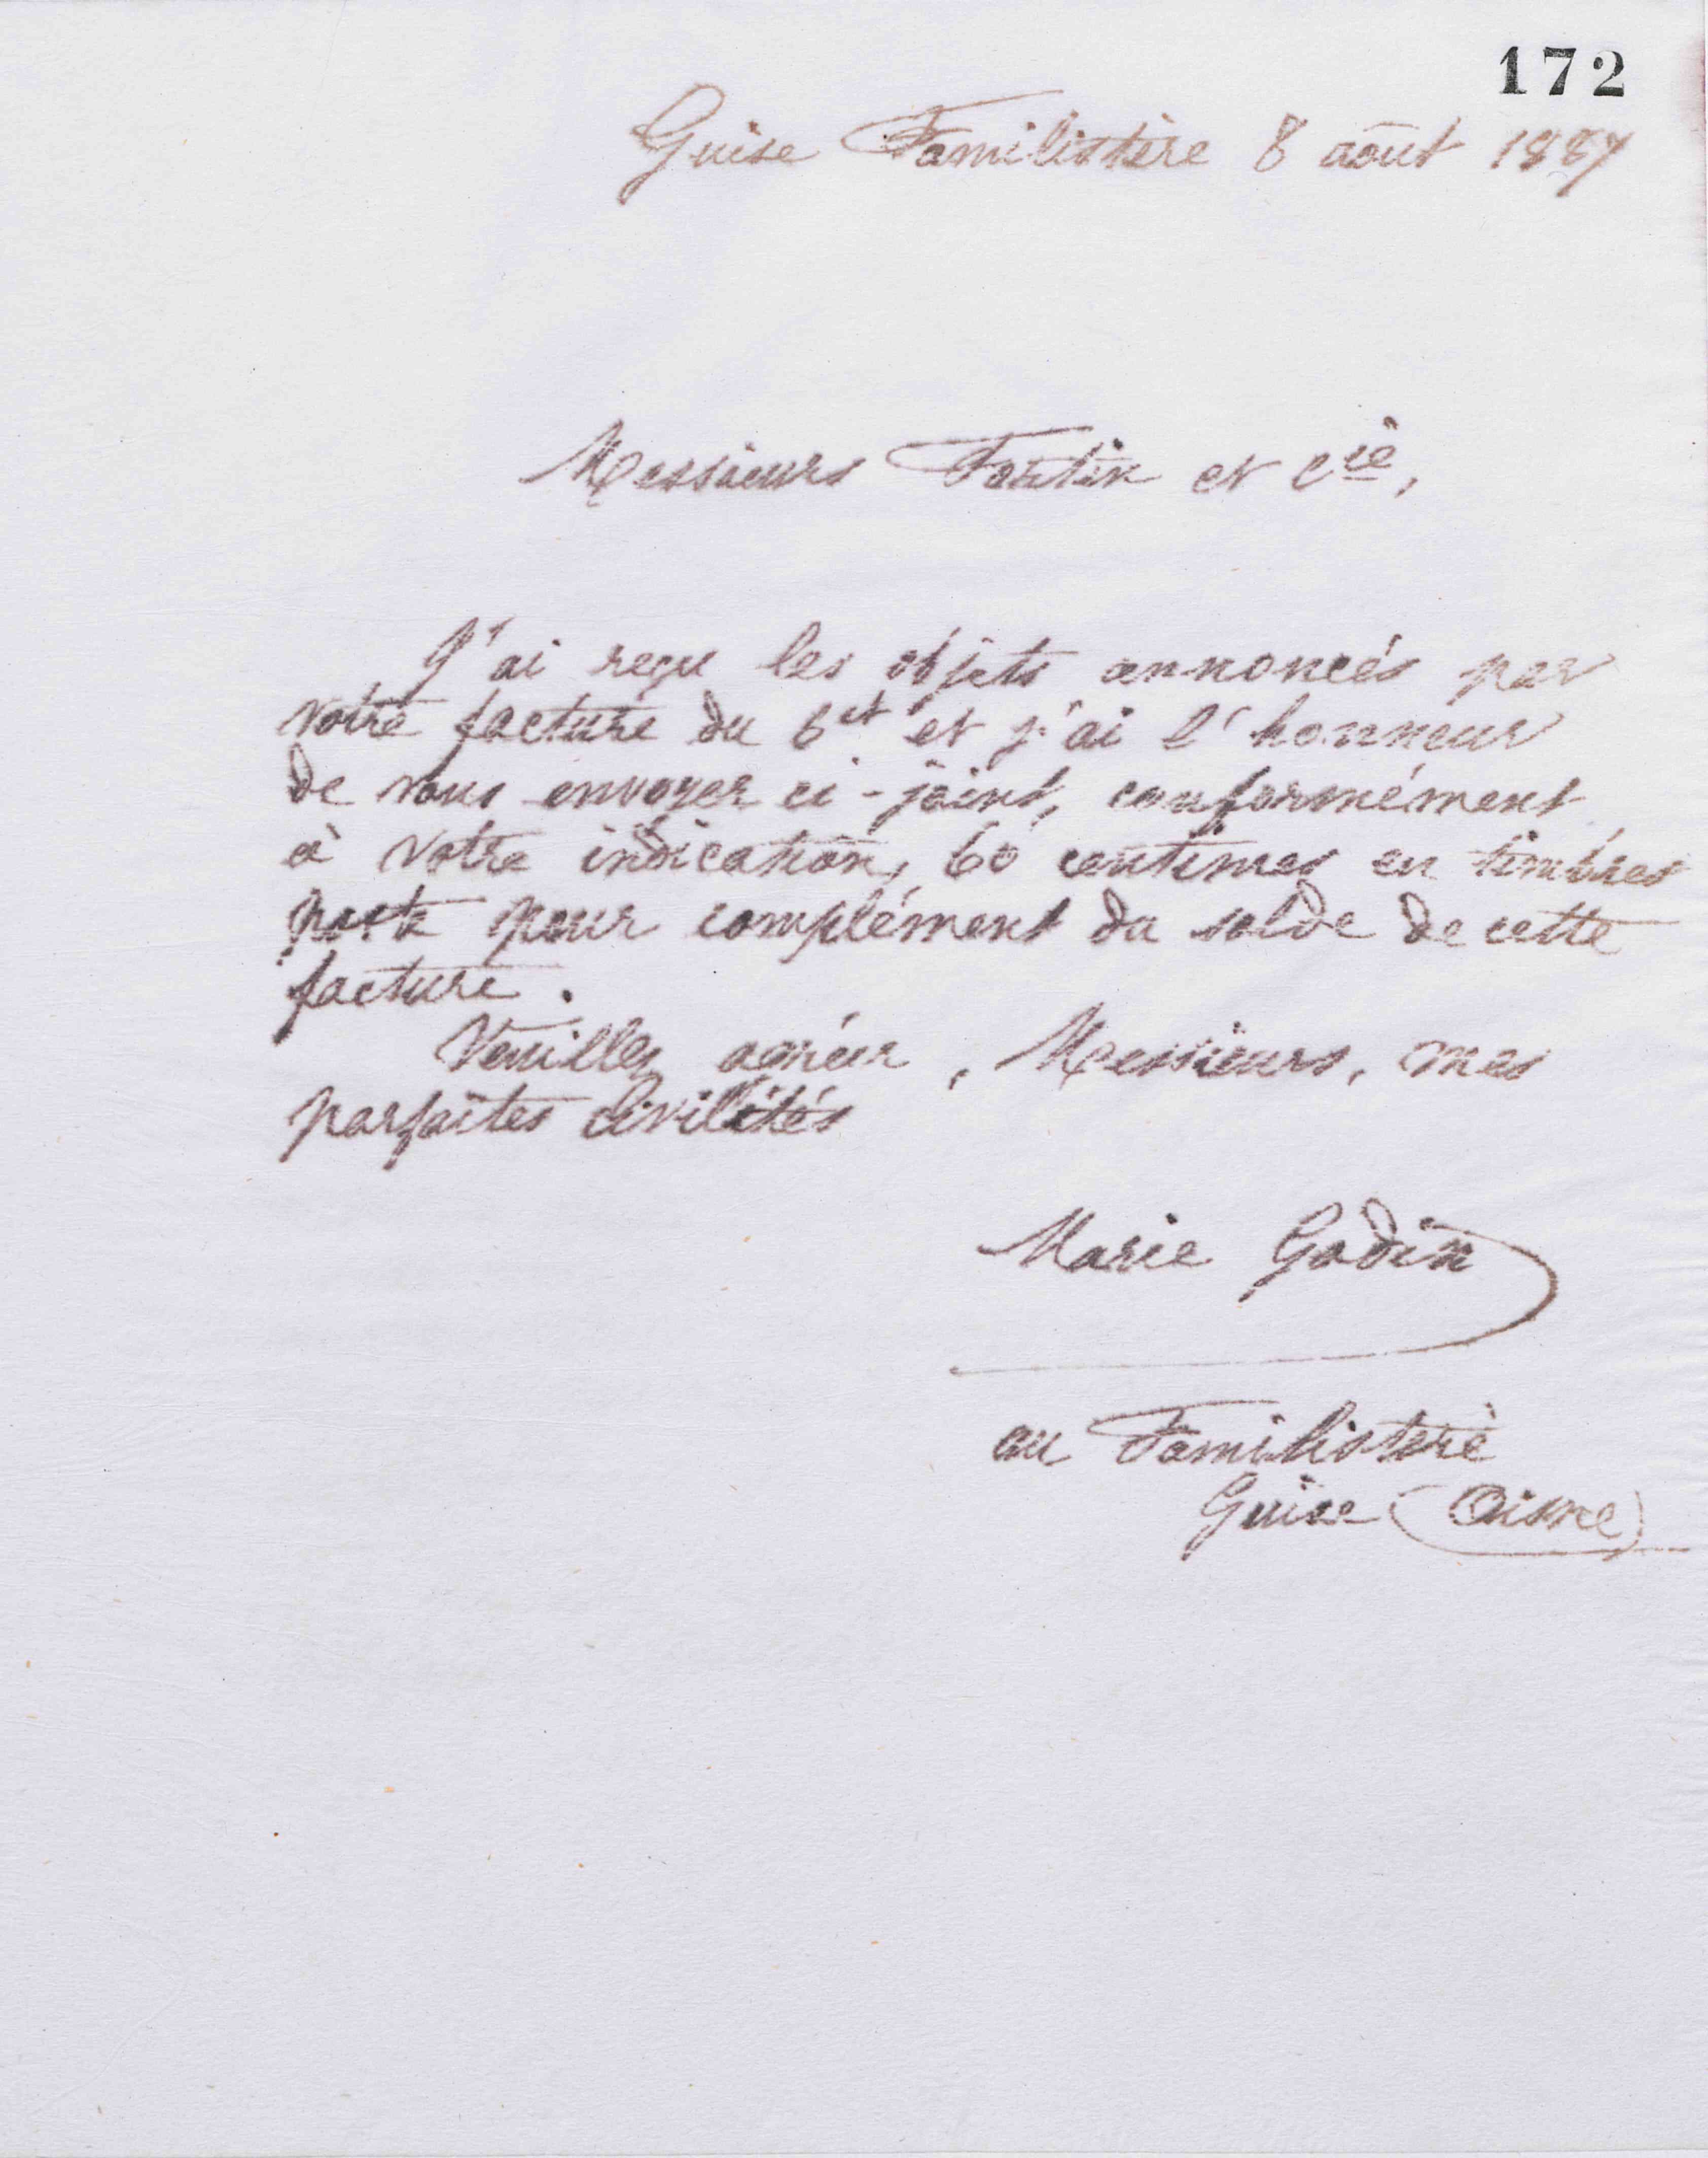 172
Guise Familistère 8 août 1887
Messieurs Fortin et Cie,
J'ai reçu les objets annoncés par
votre facture du 6 ct et j'ai l'honneur
de vous envoyer ci-joint, conformément
à votre indication, 60 centimes en timbres
poste pour complément du solde de cette
facture.
Veuillez agréer, Messieurs, mes
parfaites civilités
Marie Godin
au Familistère
Guise (Aisne)